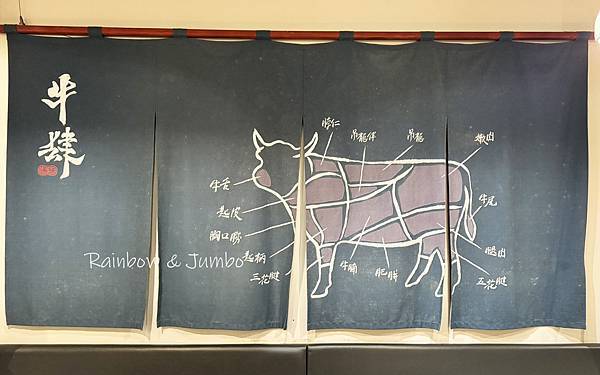 牛肆
脖仁
吊龍伴
吊龍
嫩肉
牛舌
匙皮
胸口朥
匙柄
三花腱
牛腩
肥胼
牛尾
腿肉
五花腱
Rainbow & Jumbo